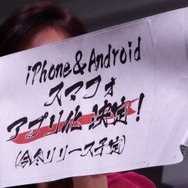 iPhone&Android
スマフォ
アプリ化 決定!
(今冬リリース予定)